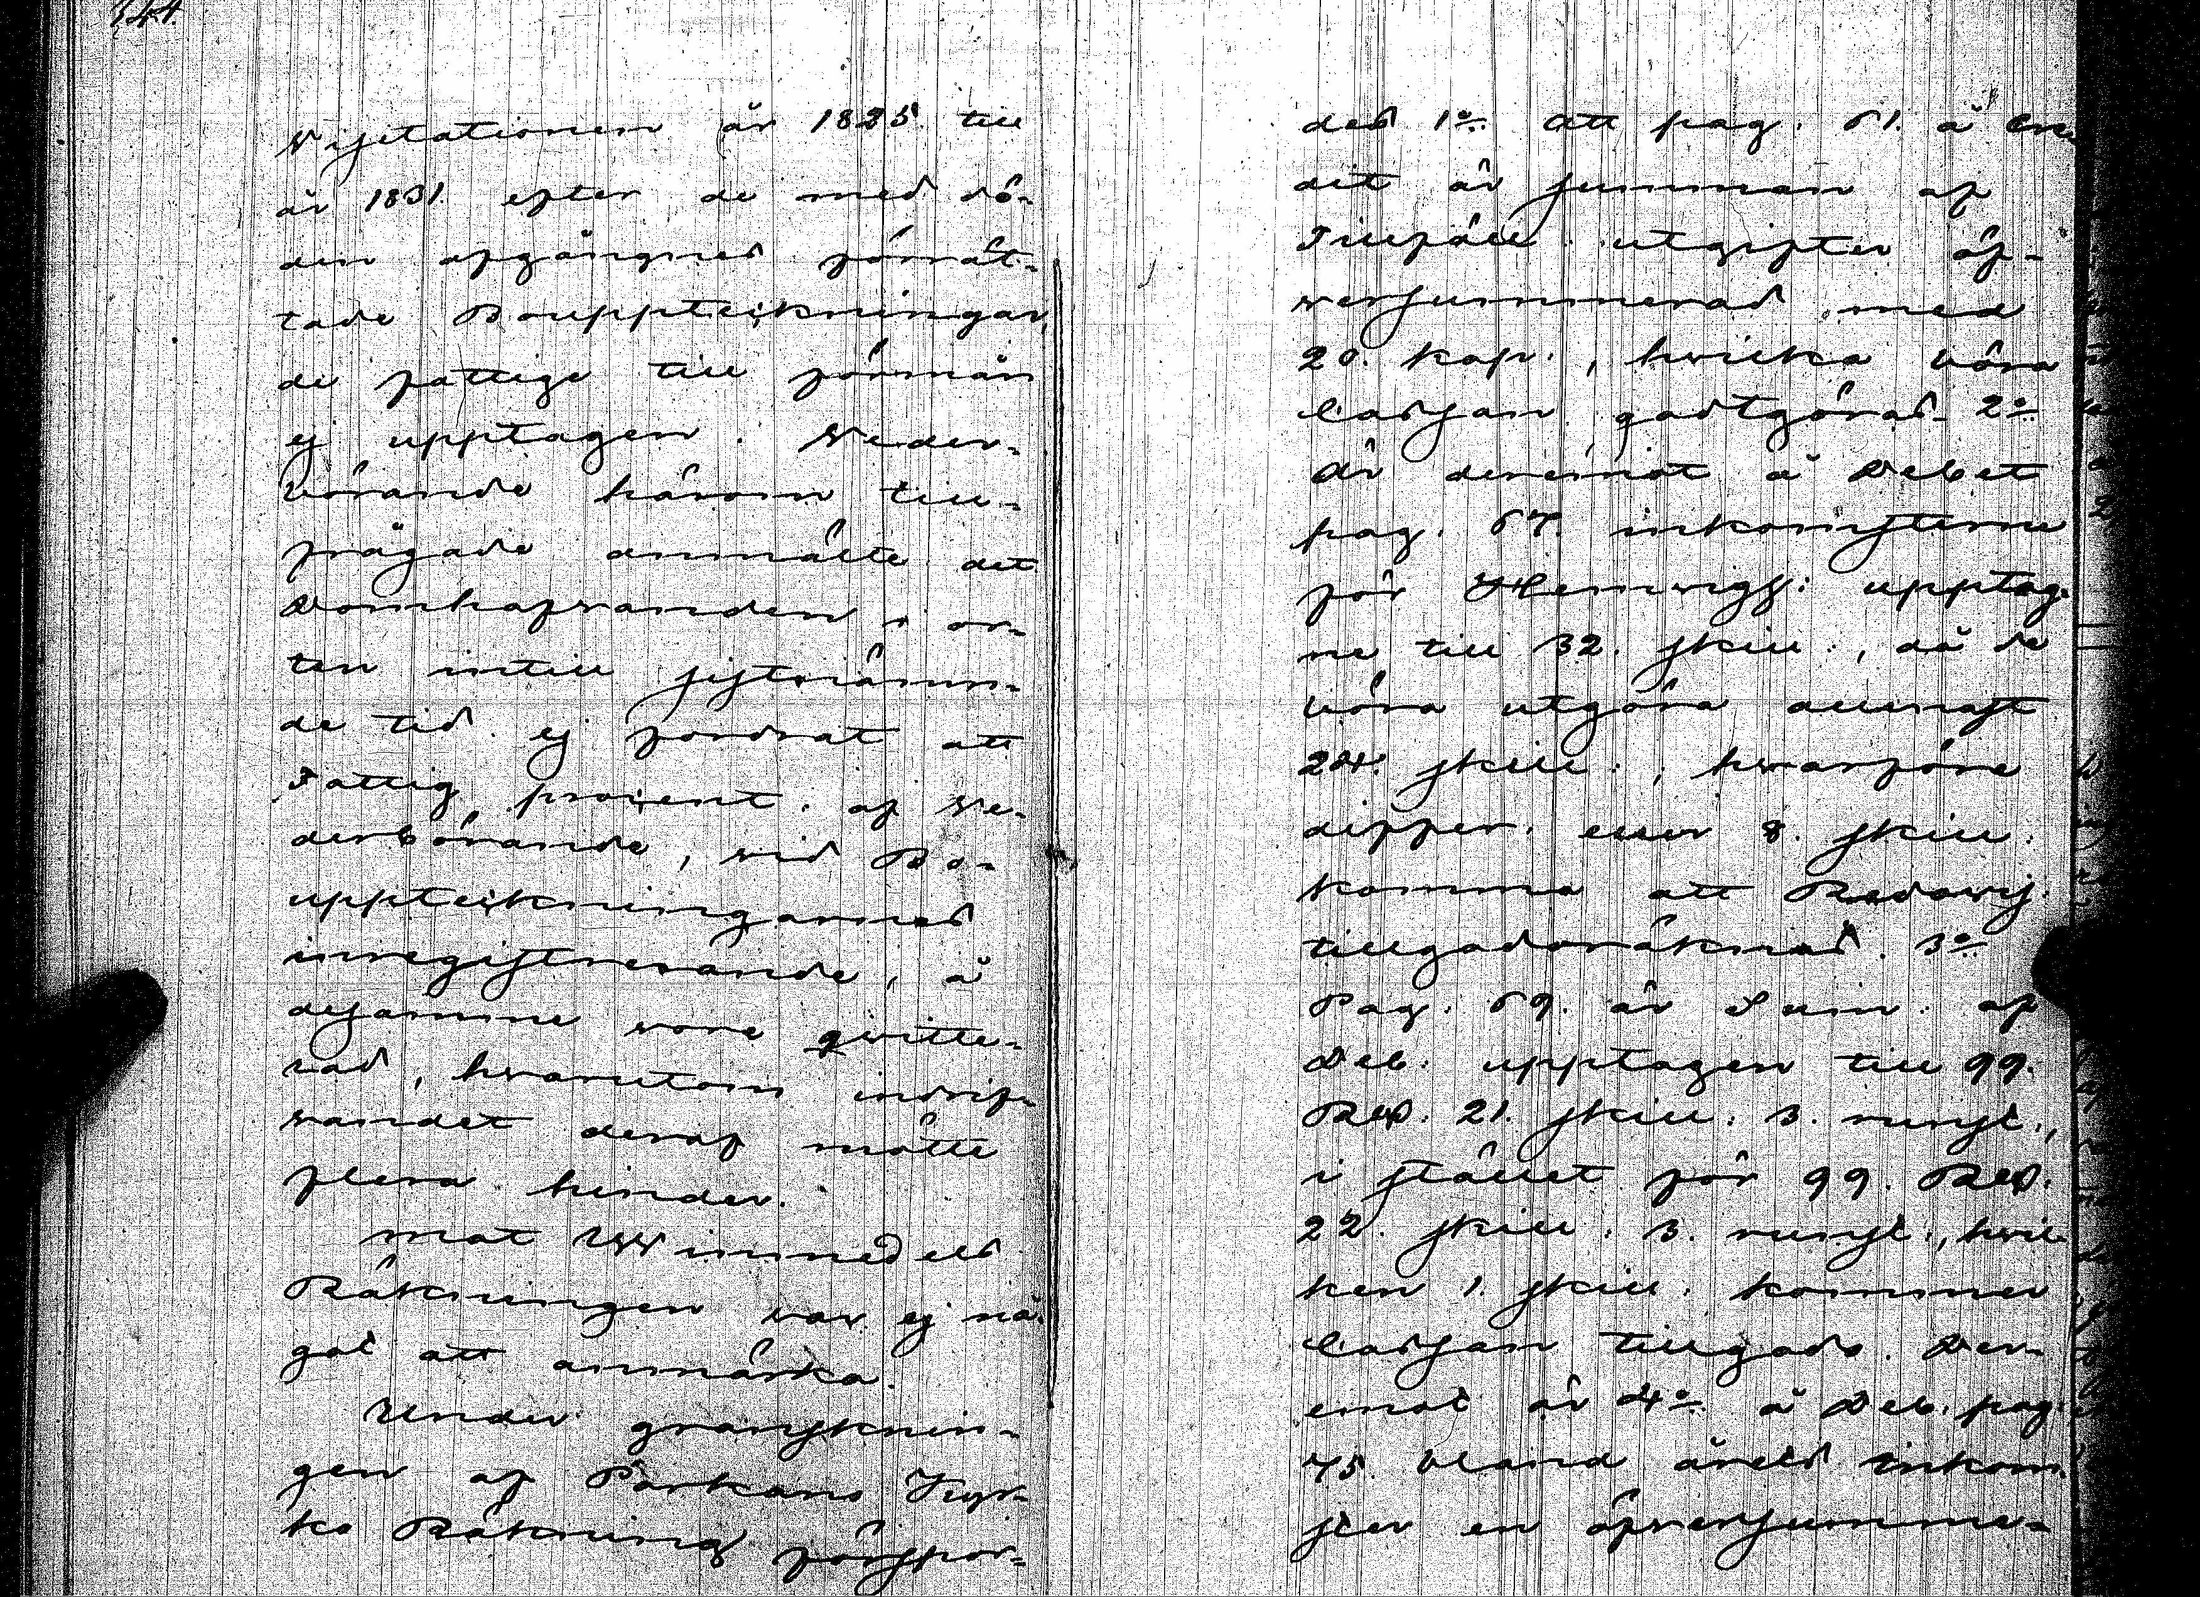 344.
Visitationen år 1825 till
år 1831. efter de med dö-
den afgångnes förrät-
tade Boupptekningar,
de fattige till förmån
ej upptagen. Veder-
börande härom till-
frågade anmälte det
Domhafvanden i or-
ten intill sistnämn-
de tid ej fordrat att
Fattig procent. af ve-
derbörande, vid Bo-
uppteckningarnes
inregistrerande, å
desamme vore qvitte-
rad, hvarutom indrif-
vandet deraf mötte
flera hinder.
mot Winmedels
Räkningen var ej nå-
got att anmärka.
Under gransknin-
gen af Parkano Kyr-
ko Räkning förspor-
des 1o. att pag. 61. å Cre-
dit är summan af
Tillfäll. utgifter öf-
versummerad med
20. kop., hvilka böra
Cassan godtgöras. 2o
Är deremot å Debet
pag. 67. inkomsterne
för Hemvigs: upptag-
ne till 32. skill., då de
böra utgöra allenast
24. skill:, hvarföre
differ. eller 8. skill.
komma att Redovis.
tillgodoräknas. 3o
Pag. 69. är Sum. af
Deb: upptagen till 99.
RD. 21. skill: 3. runst.,
i stället för 99. RD.
22. skill: 3. runst., hvil-
ken 1. skill. kommer
Cassan tillgodo. Der-
emot är 4o å Deb. pag.
75. bland årets inkom-
ster en öfversumme-